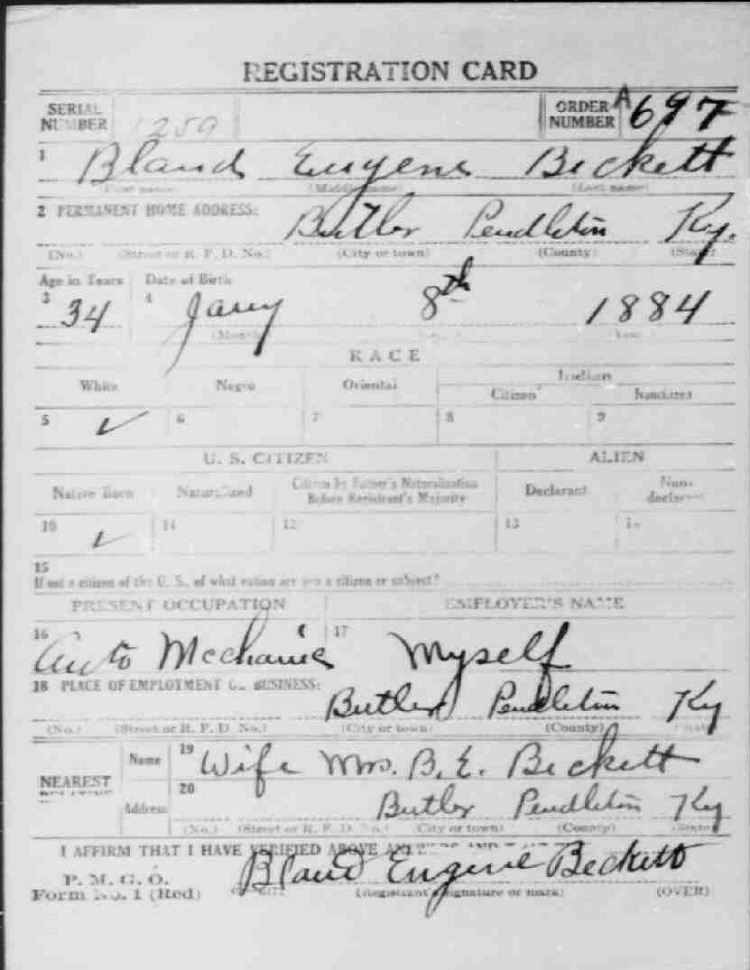 REGISTRATION CARD
SERIAL NUMBER 1259 ORDER NUMBER A 697
1 Bland Eugene Beckett
(First name) (Middle name) (Last name)
2 PERMANENT HOME ADDRESS:
Butler Pendleton Ky.
(No.) (Street or R. F. D. No.) (City or town) (County) (State)
Age in Years Date of Birth
3 34 4 Jany 8th 1884
(Month) Year
RACE
White Negro Oriental Indian
Citizen Noncitizen
5 ✓ 6 7 8 9
U. S. CITIZEN ALIEN
Native Born Naturalized Citizen by Father's Naturalization Before Registrant's Majority Declarant Non-declarant
10 ✓ 11 12 13 14
15
If not a citizen of the U. S., of what nation are you a citizen or subject?
PRESENT OCCUPATION EMPLOYER'S NAME
16 Auto Mechanic 17 Myself
18 PLACE OF EMPLOYMENT OR BUSINESS:
Butler Pendleton Ky
(No.) (Street or R. F. D. No.) (City or town) (County)
NEAREST RELATIVE
Name 19 Wife Mrs. B. E. Beckett
Address 20 Butler Pendleton Ky
(No.) (Street or R. F. D. No.) (City or town) (County) (State)
I AFFIRM THAT I HAVE VERIFIED ABOVE
P. M. G. O.
Form No. 1 (Red)
Bland Eugene Beckett
(Registrant's signature or mark) (OVER)